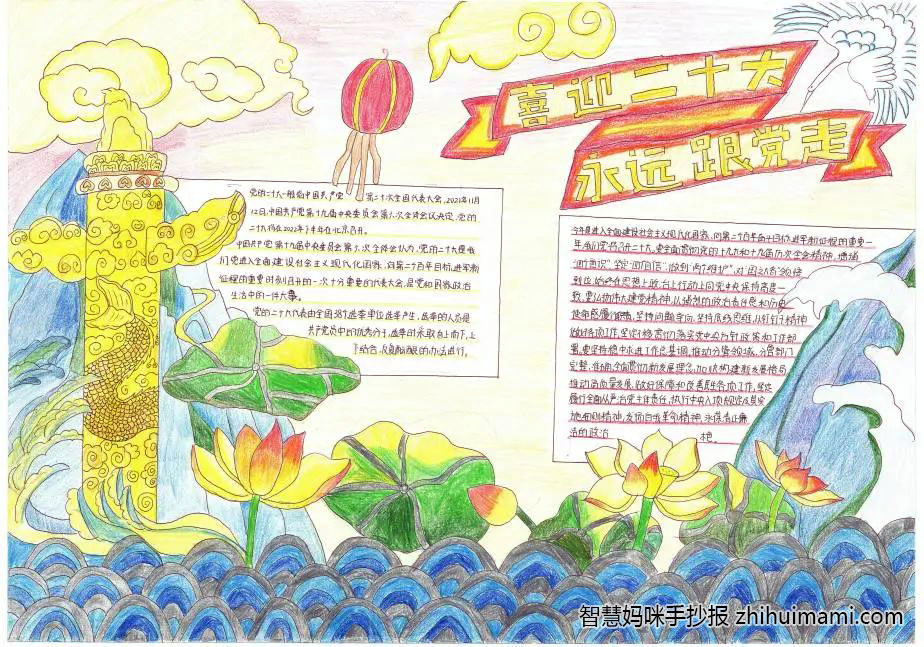 喜迎二十大
永远跟党走
党的二十大一般指中国共产党第二十次全国代表大会，2021年11月
12日，中国共产党第十九届中央委员会第六次全体会议决定，党的
二十大将在2022年下半年在北京召开。
中国共产党第十九届中央委员会第六次全体会认为，党的二十大是我
们党进入全面建设社会主义现代化国家，向第二个百年目标进军新
征程的重要时刻召开的一次十分重要的代表大会，是党和国家政治
生活中的一件大事。
党的二十大代表由全国38个选举单位选举产生，选举的人员是
共产党员中的优秀分子，选举时采取自上而下，上
下结合，反复酝酿的办法进行。
今年是进入全面建设社会主义现代化国家，向第二个百年奋斗目标进军新征程的重要一
年，我们党将召开二十大，要全面贯彻党的十九大和十九届历次全会精神，增强
“四个意识”，坚定“四个自信”，做到“两个维护”，
到位，始终在思想上政治上行动上同党中央保持高度一
致，更弘扬伟大建党精神，以强烈的政治责任感和历史
使命感履行职责，坚持问题导向，坚持系统思维，以钉钉子精神
做好各项工作，坚定不移贯彻落实党中央方针政策和工作部
署，要坚持稳中求进工作总基调，推动分管领域、分管部门
完整、准确、全面贯彻新发展理念，加快构建新发展格局
推动高质量发展，做好保障和改善民生各项工作，坚决
履行全面从严治党主体责任，执行中央八项规定及其实
施细则精神，发扬自我革命精神，永葆清正廉
洁的政治
智慧妈咪手抄报 zhihuimami.com